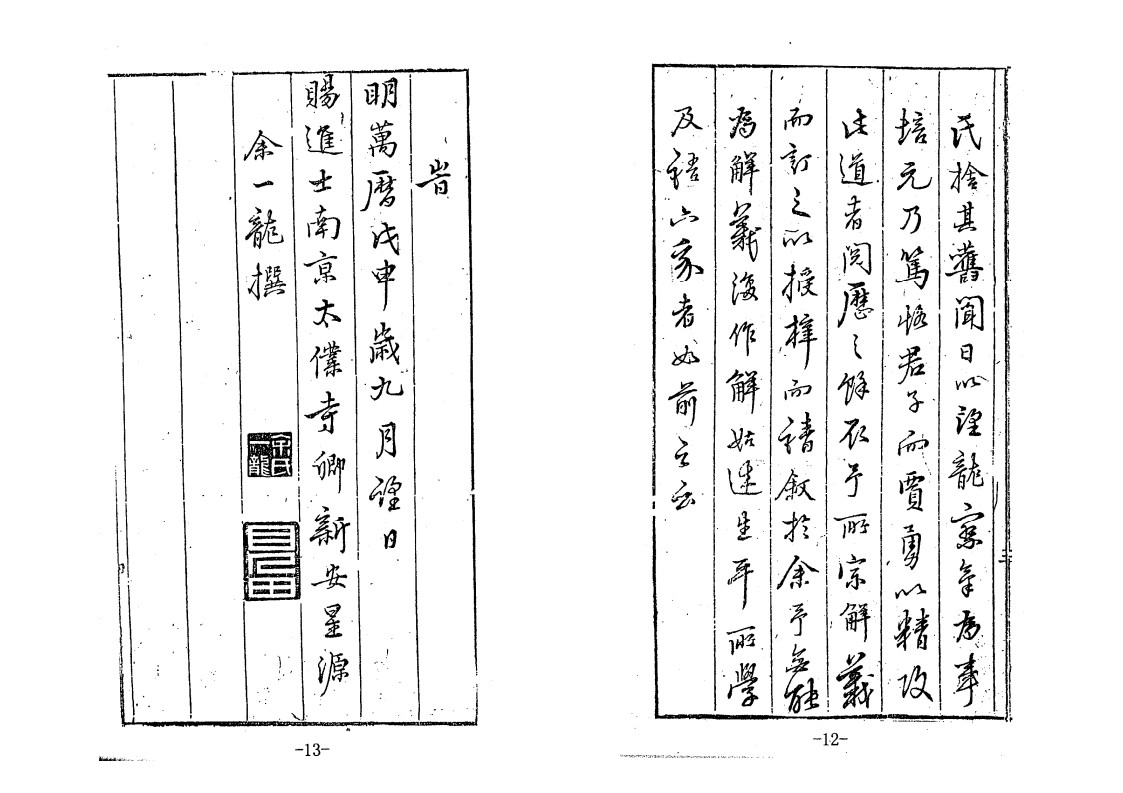 氏捨其舊聞日以望龍察氣為事
培元乃篤恪君子而賈勇以精攻
此道者閱歷之餘取予所宗解義
而訂之以授梓而請叙於余予無能
為解義復作解姑述生平所學
及語家者如前云云
-12-
旹
明萬曆戊申歲九月望日
賜進士南京太僕寺卿新安星源
余一龍撰
余氏一龍
-13-